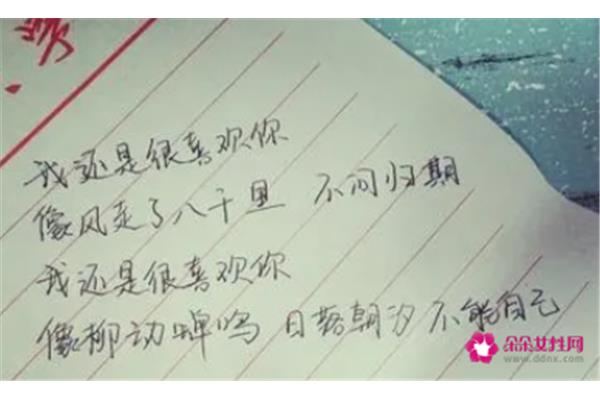 我还是很喜欢你
像风走了八千里 不问归期
我还是很喜欢你
像柳动蝉鸣 日落朝汐 不能自已
朵朵女性网
www.ddnx.com